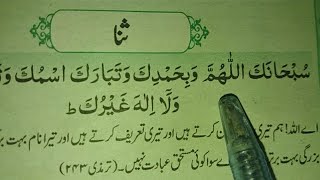 ثنا
سُبْحَانَكَ اللّٰهُمَّ وَبِحَمْدِكَ وَتَبَارَكَ اسْمُكَ
وَلَا اِلٰهَ غَيْرُكَ ط
اے اللہ! ہم تیری کرتے ہیں اور تیری تعریف کرتے ہیں اور تیرا نام بہت
بزرگی بہت سوا کوئی مستحق عبادت نہیں۔ (ترمذی ۲۴۳)